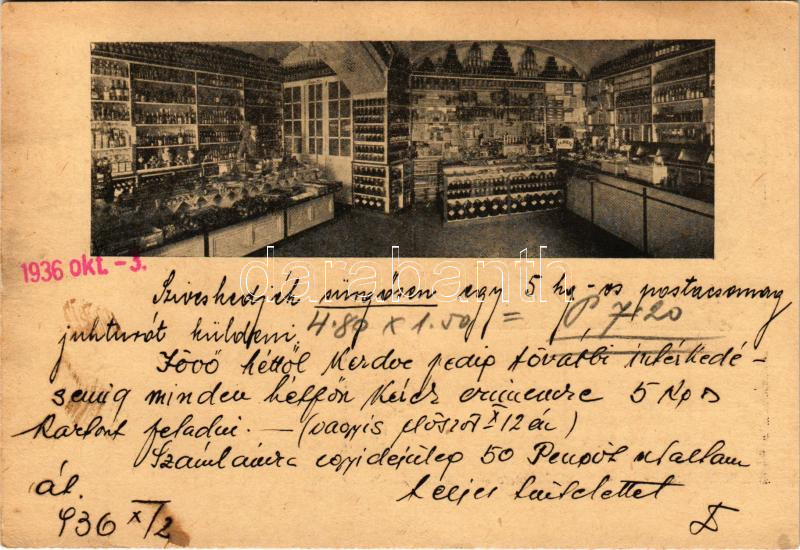 1936 OKT. -3.
Sziveskedjék sürgősen egy 5 kg-os postacsomag
juhturót küldeni.
4.80 x 1.50 = P 7.20
Jövő héttől kezdve pedig további intézkedé-
semig minden hétfőn kérek címemre 5 Kg os
kartont feladni. — (vagyis először X 12 én)
Számlámra egyidejüleg 50 Pengőt utaltam
át.
teljes tisztelettel
936 X/2
darabanth